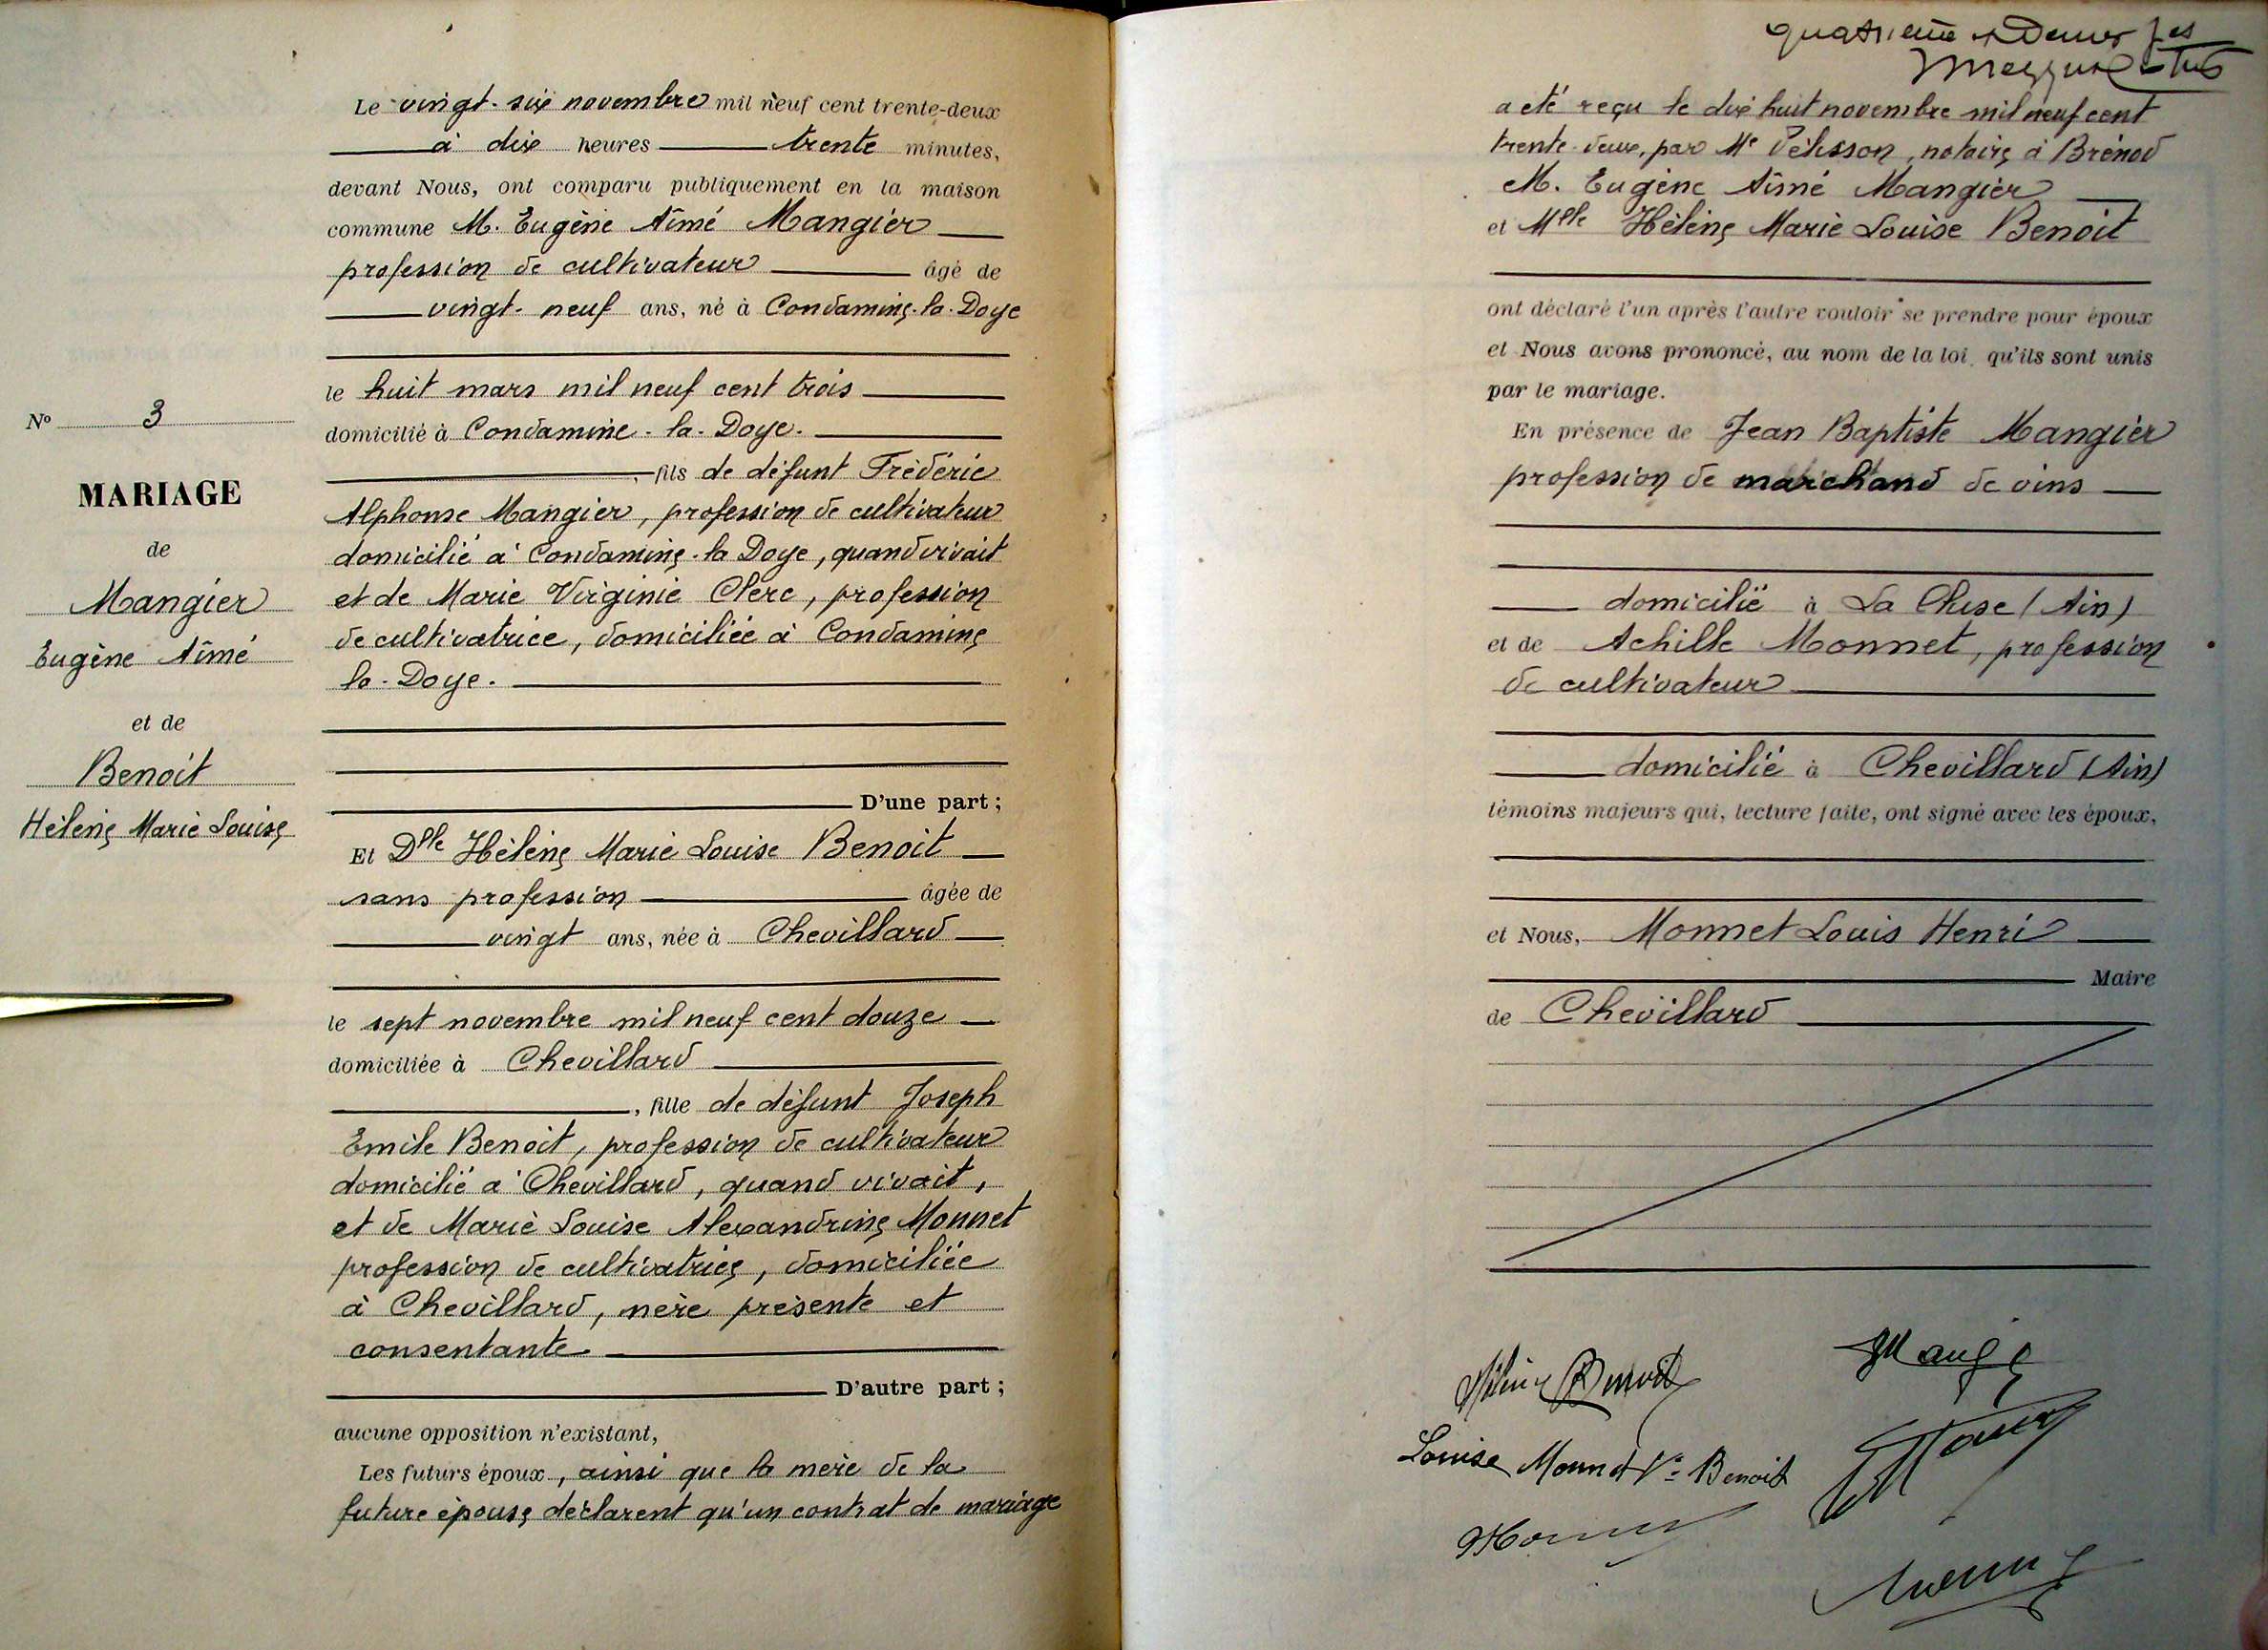 N° 3
MARIAGE
de
Mangier
Eugène Aîmé
et de
Benoit
Hélène Marie Louise
Le vingt-six novembre mil neuf cent trente-deux
à dix heures trente minutes,
devant Nous, ont comparu publiquement en la maison
commune M. Eugène Aîmé Mangier
profession de cultivateur âgé de
vingt-neuf ans, né à Condamine-la-Doye
le huit mars mil neuf cent trois
domicilié à Condamine-la-Doye.
, fils de défunt Frédéric
Alphonse Mangier, profession de cultivateur
domicilié à Condamine-la Doye, quand vivait
et de Marie Virginie Clerc, profession
de cultivatrice, domiciliée à Condamine
la-Doye.
D'une part ;
Et Dlle Hélène Marie Louise Benoit
sans profession âgée de
vingt ans, née à Chevillard
le sept novembre mil neuf cent douze
domiciliée à Chevillard
, fille de défunt Joseph
Emile Benoit, profession de cultivateur
domicilié à Chevillard, quand vivait,
et de Marie Louise Alexandrine Monnet
profession de cultivatrice, domiciliée
à Chevillard, mère présente et
consentante.
D'autre part ;
aucune opposition n'existant,
Les futurs époux, ainsi que la mère de la
future épouse déclarent qu'un contrat de mariage
quatrième
a été reçu le dix huit novembre mil neuf cent
trente-deux, par Me Pélisson, notaire à Brénod
M. Eugène Aîmé Mangier
et Mlle Hélène Marie Louise Benoit
ont déclaré l'un après l'autre vouloir se prendre pour époux
et Nous avons prononcé, au nom de la loi, qu'ils sont unis
par le mariage.
En présence de Jean Baptiste Mangier
profession de marchand de vins
domicilié à La Cluse (Ain)
et de Achille Monnet, profession
de cultivateur
domicilié à Chevillard (Ain)
témoins majeurs qui, lecture faite, ont signé avec les époux,
et Nous, Monnet Louis Henri
Maire
de Chevillard
Hélène Benoit
Louise Monnet Ve Benoit